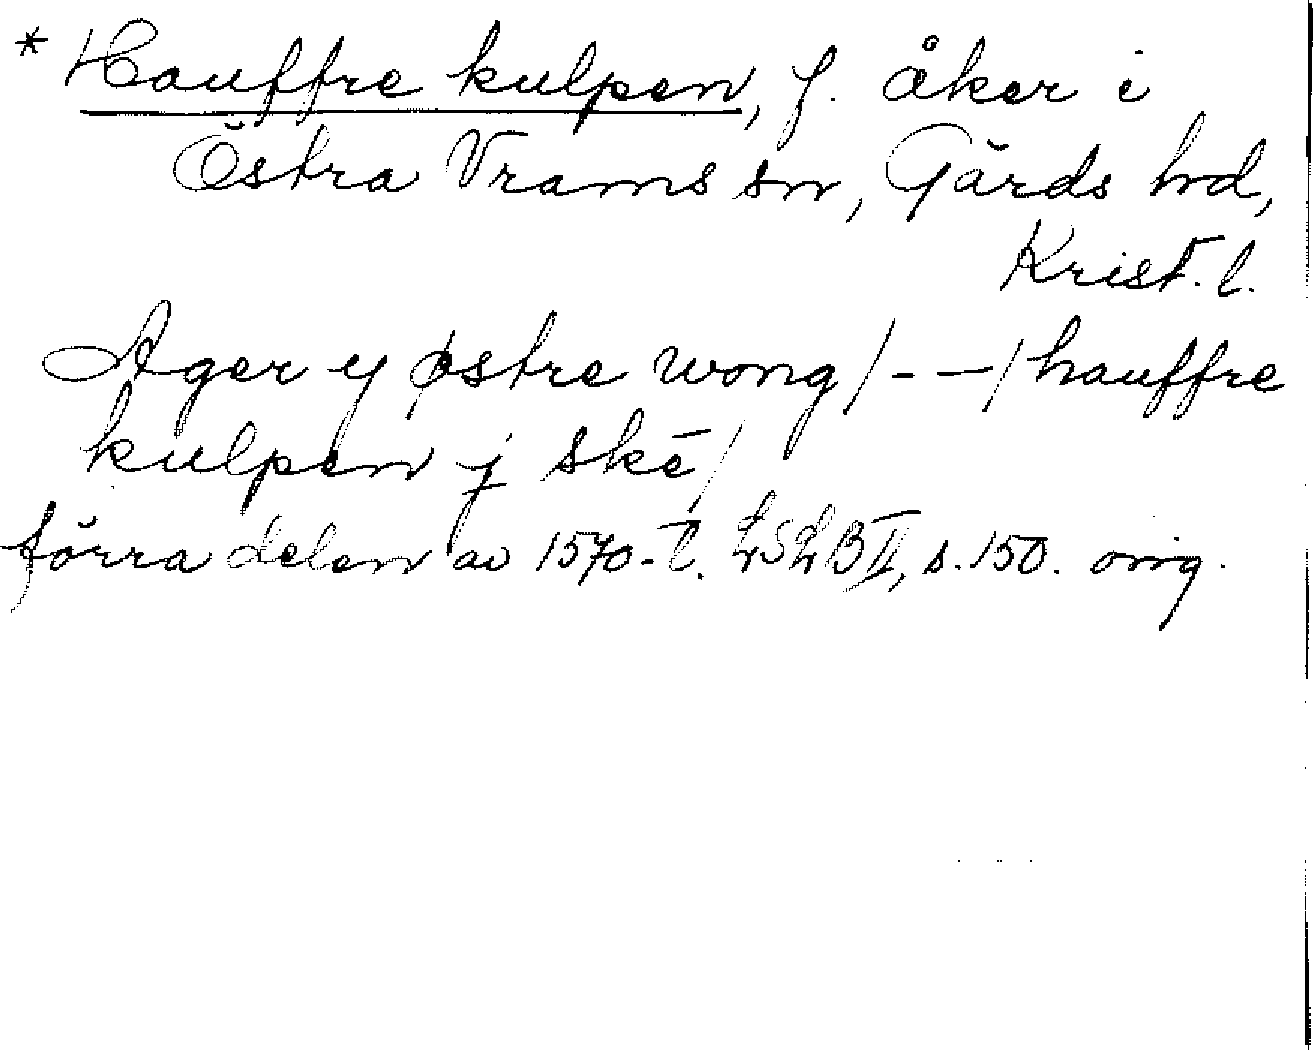 * Hauffre kulpen, f. åker i
Östra Vrams sn, Gärds hd,
Krist. l.
Ager y østre wong /- - -/ hauffre
kulpen j skē /
förra delen av 1570-t. LSLB II, s. 150. orig.